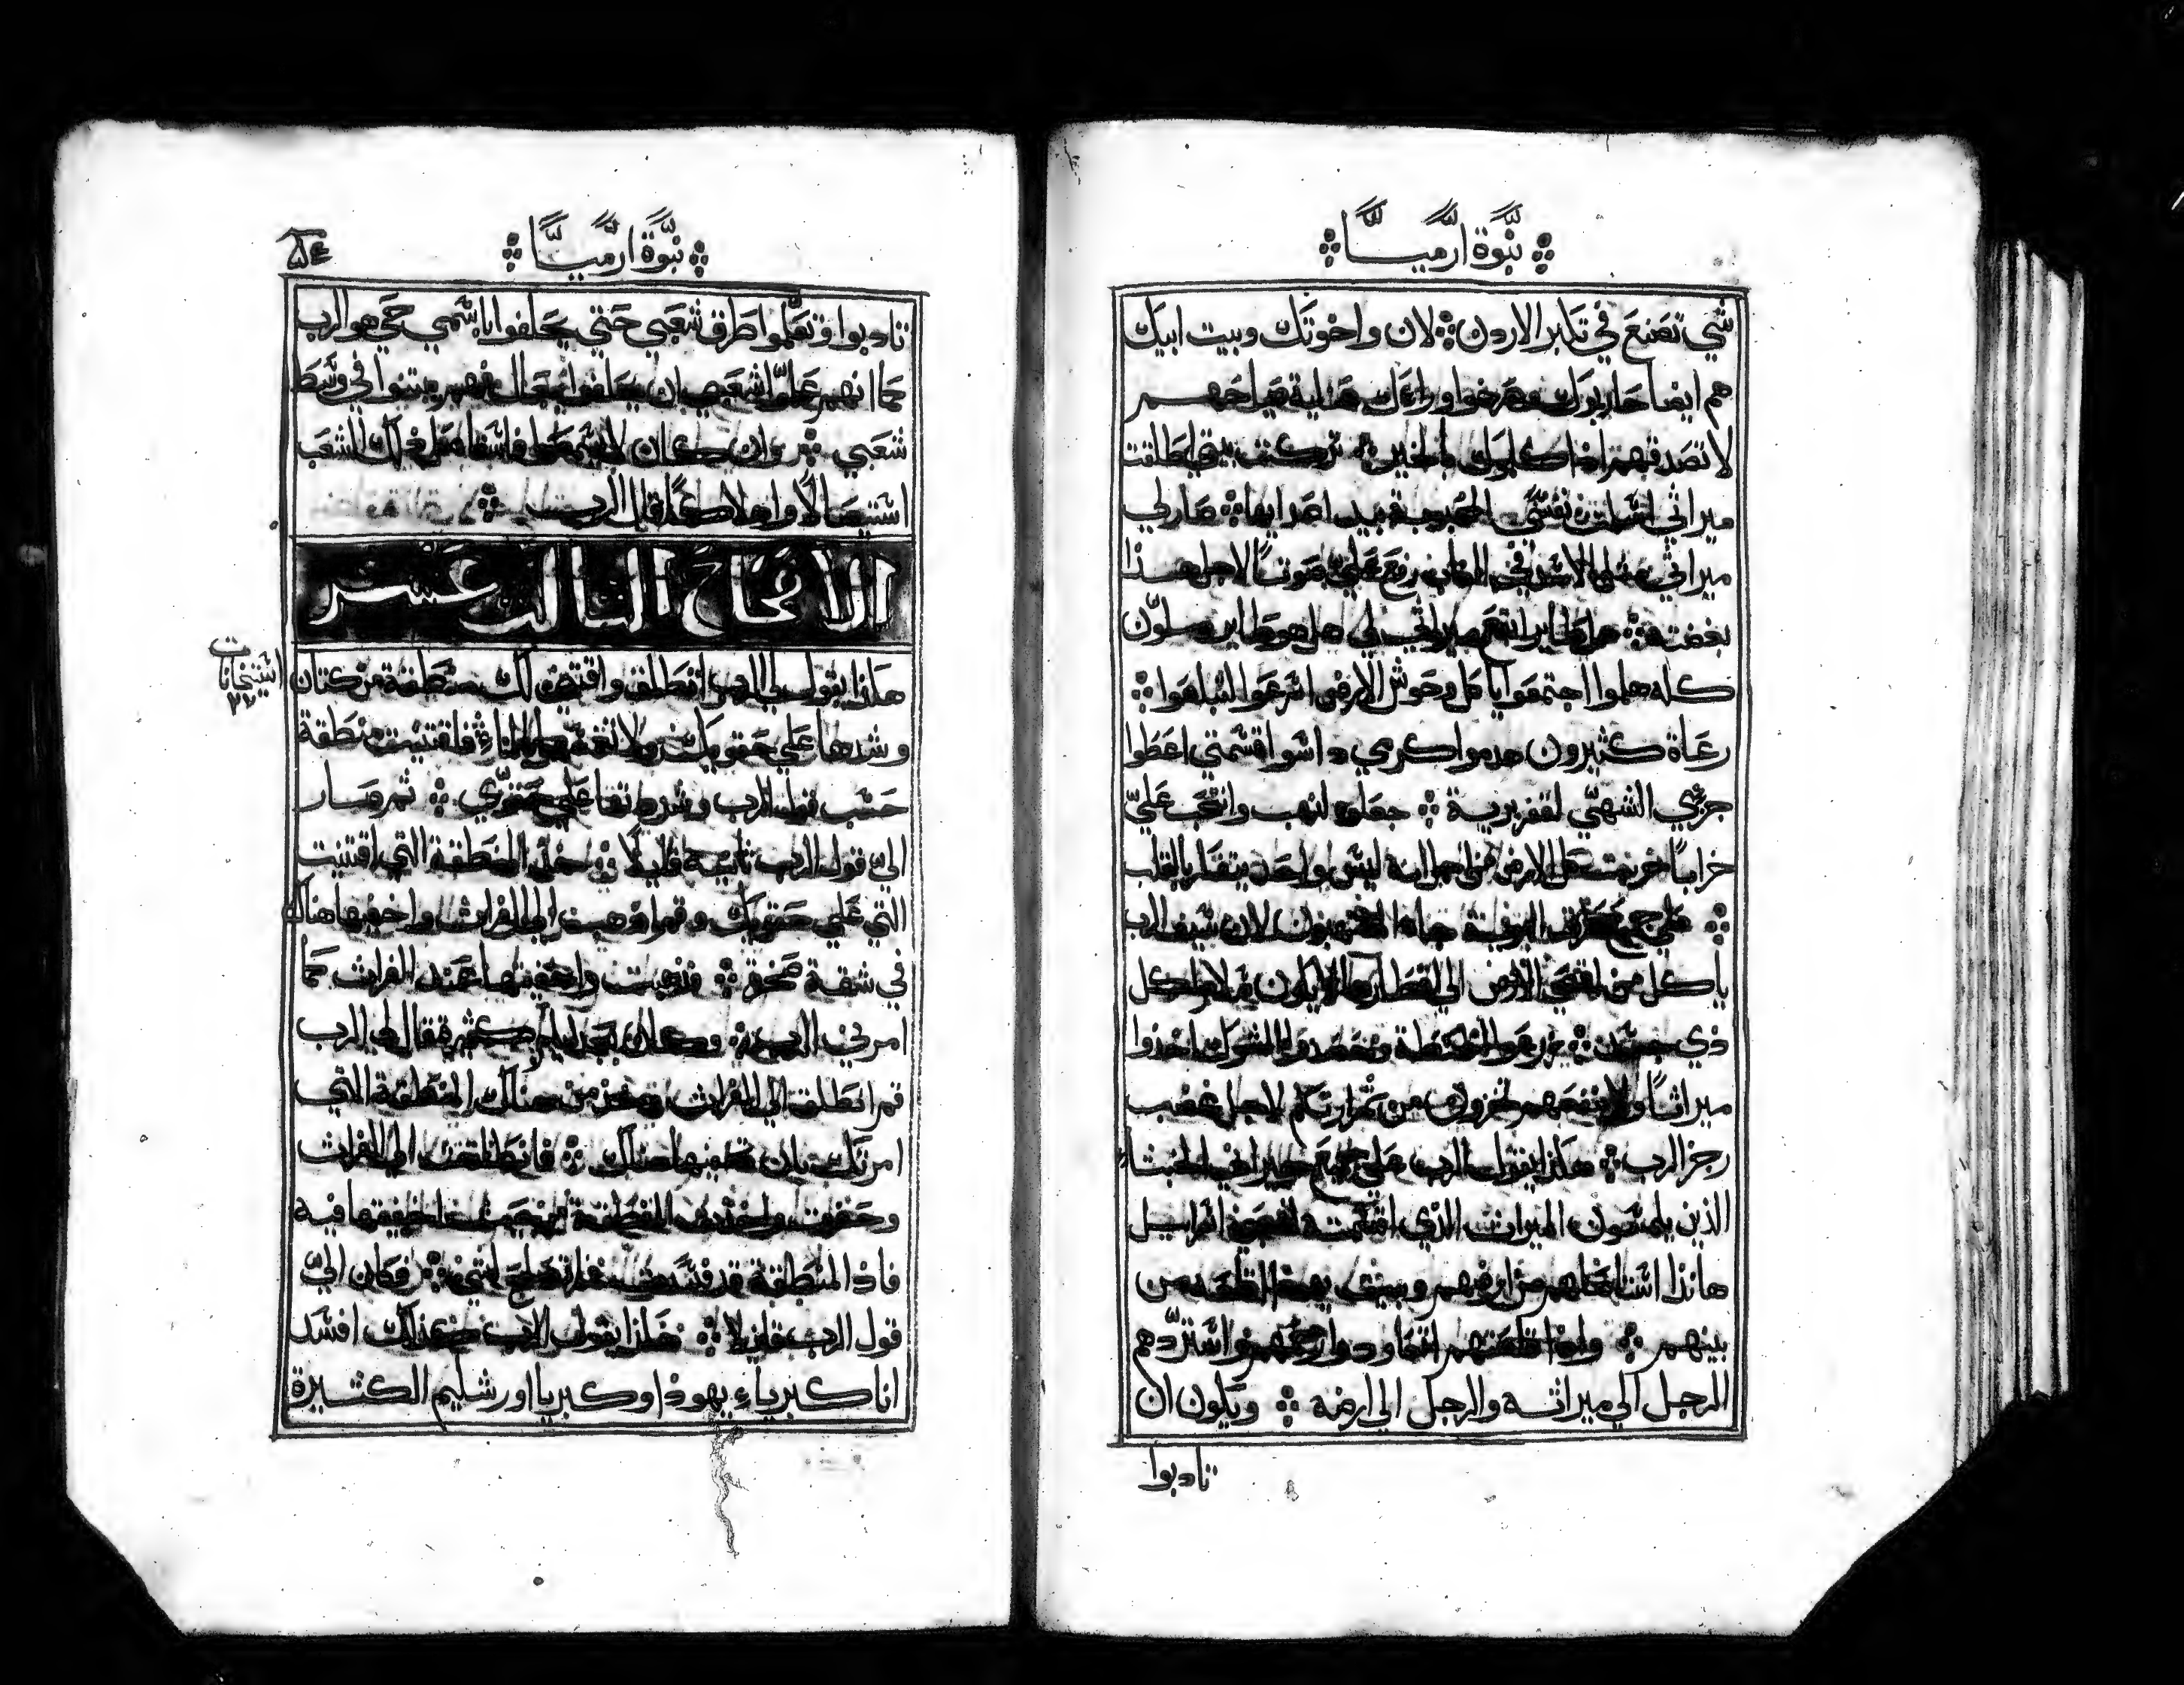 نبوة ارميا
شي تصنع في تكبر الاردن لان واخوتك وبيت ابيك
هم ايضا حاربوك وصرخوا وراءك هلية صياحهم
لا تصدقهم اذا كلموك بالخير تركت بيتي اطلقت
ميراثي اسلمت نفسي المحبوبة بيد اعدايها صار لي
ميراثي مثل الاسد في الغاب رفع علي صوتا لاجل هذا
بغضته هل طاير ابقع ميراثي لي هل هو طاير ملون
كله هلموا اجتمعوا يا كل وحوش الارض اسرعوا لتبلعوا
رعاة كثيرون هدموا كرمي داسوا قسمتي اعطوا
جزي الشهي لقفر برية جعلوه لنهب وانتحب علي
خرابا خربت كل الارض من اجل انه ليس واحد يتفكر بالقلب
على جميع طرق البرية جاء المنتهبون لان سيف الرب
ياكل من اقصى الارض الى اقطارها لا يكون سلام لكل
ذي جسد زرعوا الحنطة وحصدوا الشوك اخذوا
ميراثا ولا ينفعهم تخزون من ثمراتكم لاجل غضب
رجز الرب هكذا يقول الرب على جميع جيراني الخبثا
الذين يلمسون الميراث الذي اقسمته لشعبي اسراييل
هانذا استاصلهم من ارضهم وبيت يهوذا اقلعه من
بينهم واذا قلعتهم اتعاود وارحمهم واستردهم
الرجل الي ميراثه والرجل الي ارضه ويكون ان
تادبوا
نبوة ارميا
تادبوا وتعلموا طرق شعبي حتي يحلفوا باسمي حي هو الرب
كما انهم علموا شعبي بان يحلفوا ببعال فهم يبتنوا في وسط
شعبي وان كان لا يسمعوا فاستاصل ذلك الشعب
استيصالا واهلاكا قال الرب
الاصحاح الثالث عشر
استنخات
٢٧
هكذا يقول لي الرب انطلق واقتض لك منطقة من كتان
وشدها علي حقويك ولا تدخلها الماء فاقتنيت منطقة
حسب قول الرب وشددتها علي حقوي ثم صار
الي قول الرب ثانية قايلا خذ المنطقة التي اقتنيت
التي علي حقويك وقم اذهب الي الفرات واخفها هناك
في شقة صخرة فذهبت واخفيتها عند الفرات كما
امرني الرب وكان بعد ايام كثيرة قال لي الرب
قم انطلق الي الفرات وخذ من هناك المنطقة التي
امرتك بان تخفيها هناك فانطلقت الي الفرات
وحفرت واخذت المنطقة من حيث اخفيتها فيه
فاذا المنطقة قد فسدت فلم تصلح لشي وكان الي
قول الرب قايلا هكذا يقول الرب كذلك افسد
انا كبرياء يهوذا وكبريا اورشليم الكثيرة